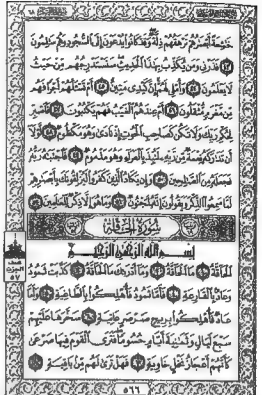 خَٰشِعَةً أَبْصَٰرُهُمْ تَرْهَقُهُمْ ذِلَّةٌ وَقَدْ كَانُوا۟ يُدْعَوْنَ إِلَى ٱلسُّجُودِ وَهُمْ سَٰلِمُونَ
٤٣ فَذَرْنِي وَمَن يُكَذِّبُ بِهَٰذَا ٱلْحَدِيثِ سَنَسْتَدْرِجُهُم مِّنْ حَيْثُ
لَا يَعْلَمُونَ ٤٤ وَأُمْلِي لَهُمْ إِنَّ كَيْدِي مَتِينٌ ٤٥ أَمْ تَسْـَٔلُهُمْ أَجْرًا فَهُم
مِّن مَّغْرَمٍ مُّثْقَلُونَ ٤٦ أَمْ عِندَهُمُ ٱلْغَيْبُ فَهُمْ يَكْتُبُونَ ٤٧ فَٱصْبِرْ
لِحُكْمِ رَبِّكَ وَلَا تَكُن كَصَاحِبِ ٱلْحُوتِ إِذْ نَادَىٰ وَهُوَ مَكْظُومٌ ٤٨ لَّوْلَا
أَن تَدَٰرَكَهُۥ نِعْمَةٌ مِّن رَّبِّهِۦ لَنُبِذَ بِٱلْعَرَاءِ وَهُوَ مَذْمُومٌ ٤٩ فَٱجْتَبَٰهُ رَبُّهُۥ
فَجَعَلَهُۥ مِنَ ٱلصَّٰلِحِينَ ٥٠ وَإِن يَكَادُ ٱلَّذِينَ كَفَرُوا۟ لَيُزْلِقُونَكَ بِأَبْصَٰرِهِمْ
لَمَّا سَمِعُوا۟ ٱلذِّكْرَ وَيَقُولُونَ إِنَّهُۥ لَمَجْنُونٌ ٥١ وَمَا هُوَ إِلَّا ذِكْرٌ لِّلْعَٰلَمِينَ ٥٢
سُورَةُ الْحَاقَّةِ
بِسْمِ ٱللَّهِ ٱلرَّحْمَٰنِ ٱلرَّحِيمِ
ٱلْحَاقَّةُ ١ مَا ٱلْحَاقَّةُ ٢ وَمَا أَدْرَىٰكَ مَا ٱلْحَاقَّةُ ٣ كَذَّبَتْ ثَمُودُ
وَعَادٌ بِٱلْقَارِعَةِ ٤ فَأَمَّا ثَمُودُ فَأُهْلِكُوا۟ بِٱلطَّاغِيَةِ ٥ وَأَمَّا
عَادٌ فَأُهْلِكُوا۟ بِرِيحٍ صَرْصَرٍ عَاتِيَةٍ ٦ سَخَّرَهَا عَلَيْهِمْ
سَبْعَ لَيَالٍ وَثَمَٰنِيَةَ أَيَّامٍ حُسُومًا فَتَرَى ٱلْقَوْمَ فِيهَا صَرْعَىٰ
كَأَنَّهُمْ أَعْجَازُ نَخْلٍ خَاوِيَةٍ ٧ فَهَلْ تَرَىٰ لَهُم مِّنۢ بَاقِيَةٍ ٨
نصف
الحزب
٥٧
٥٦٦